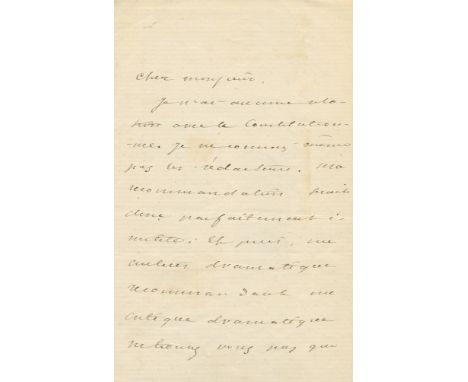 cher monsieur.
Je n'ai aucune rela-
tion avec le Constitution-
nel, je ne connais même
pas les rédacteurs. Ma
recommandation serait
donc parfaitement i-
nutile. Et puis, un
auteur dramatique
recommandant un
critique dramatique
ne trouvez vous pas que